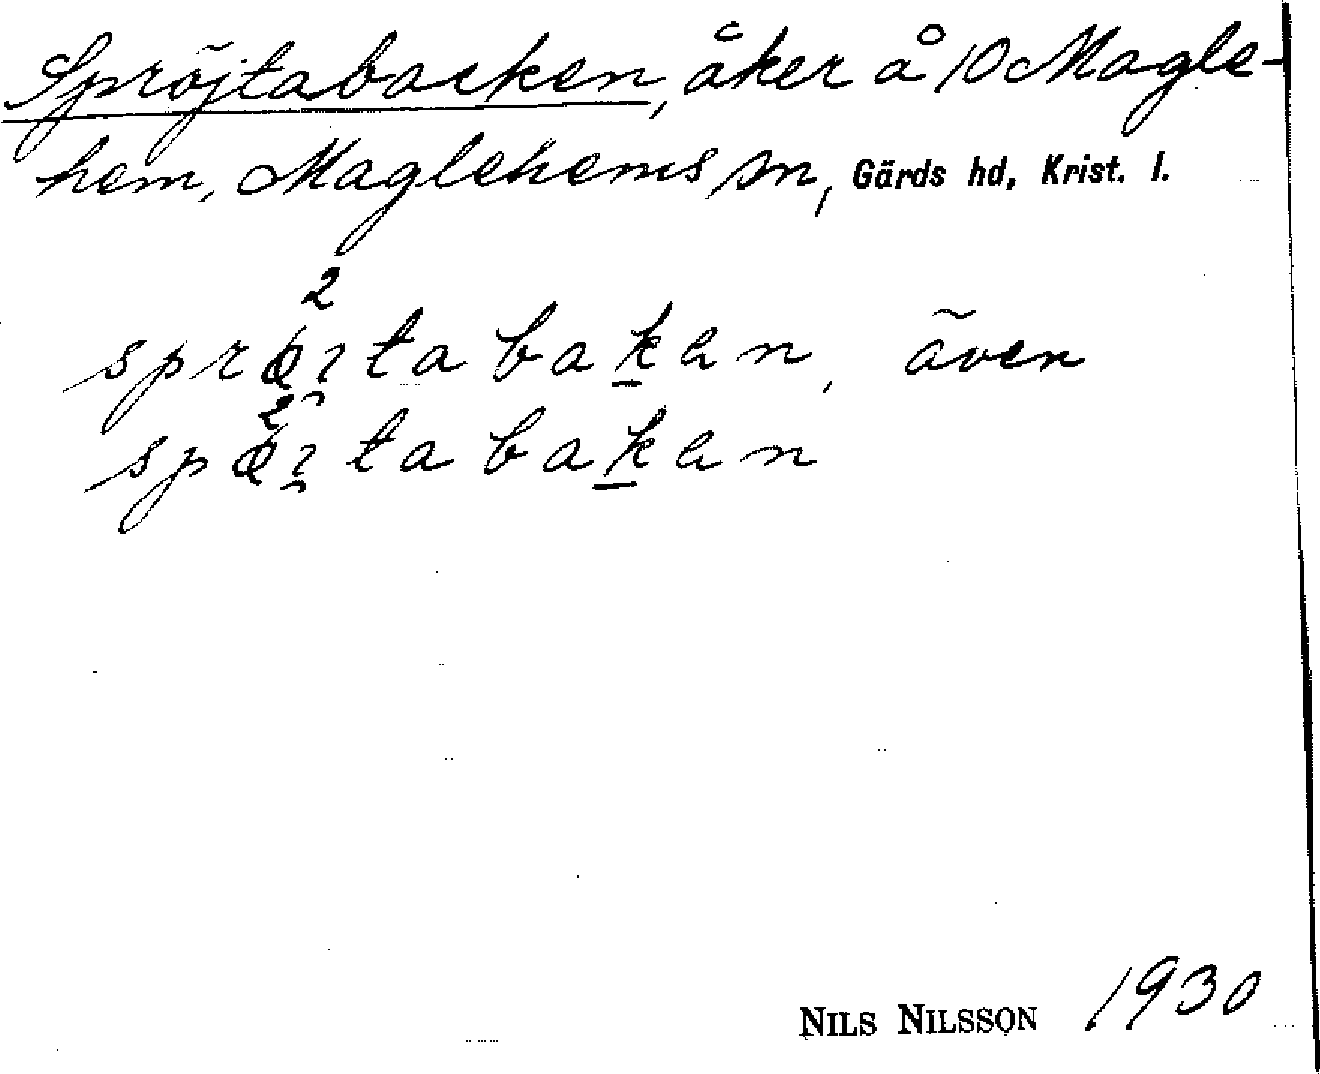 Spröjtabacken, åker å 10 Magle-
hem, Maglehems sn, Gärds hd, Krist. l.
2
sprøi̯tabak̲an, även
2
spøi̯tabak̲an
NILS NILSSON 1930